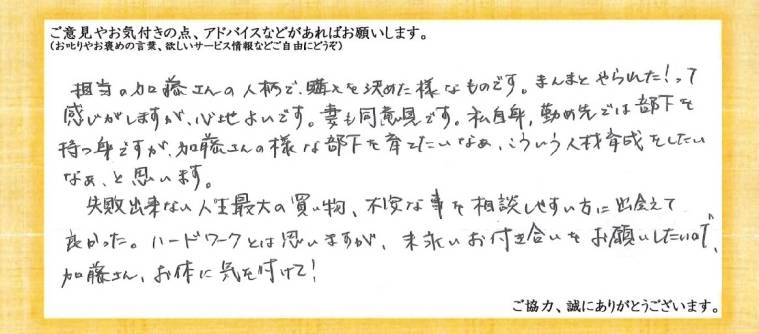 ご意見やお気付きの点、アドバイスなどがあればお願いします。
(お叱りやお褒めの言葉、欲しいサービス情報などご自由にどうぞ)
担当の加藤さんの人柄で、購入を決めた様なものです。まんまとやられた!って
感じがしますが、心地よいです。妻も同意見です。私自身、勤め先では部下を
持つ身ですが、加藤さんの様な部下を育てたいなぁ、こういう人材育成をしたい
なぁ、と思います。
失敗出来ない人生最大の買い物、不安な事を相談しやすい方に出会えて
良かった。ハードワークとは思いますが、末永いお付き合いをお願いしたいので、
加藤さん、お体に気を付けて!
ご協力、誠にありがとうございます。